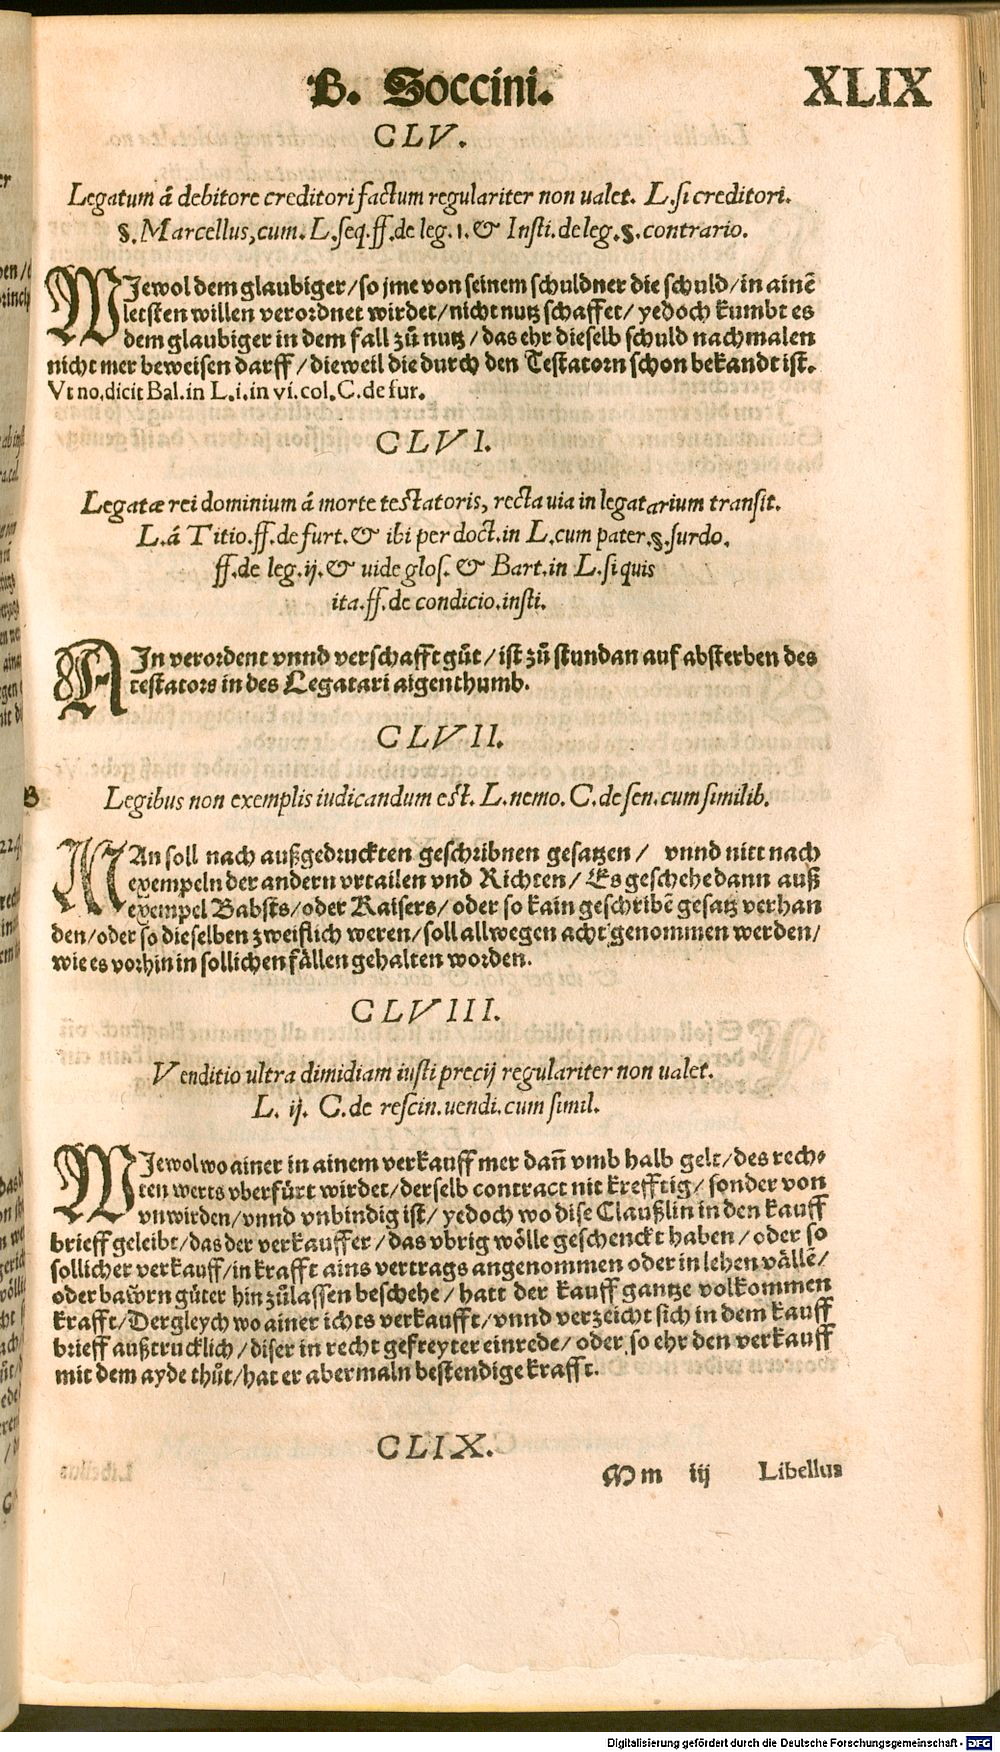 B. Soccini.
XLIX
CLV.
Legatum á debitore creditori factum regulariter non ualet. L. si creditori.
§. Marcellus, cum. L. seq. ff. de leg. 1. & Insti. de leg. §. contrario.
WJewol dem glaubiger / so jme von seinem schuldner die schuld / in ainē
letsten willen verordnet wirdet / nicht nutz schaffet / yedoch kumbt es
dem glaubiger in dem fall zů nutz / das ehr dieselb schuld nachmalen
nicht mer beweisen darff / dieweil die durch den Testatorn schon bekandt ist.
Vt no. dicit Bal. in L. i. in vi. col. C. de fur.
CLVI.
Legatæ rei dominium á morte testatoris, recta uia in legatarium transit.
L. á Titio. ff. de furt. & ibi per doct. in L. cum pater. §. surdo.
ff. de leg. ij. & uide glos. & Bart. in L. si quis
ita. ff. de condicio. insti.
AJn verordent vnnd verschafft gůt / ist zů stundan auf absterben des
testators in des Legatari aigenthumb.
CLVII.
B
Legibus non exemplis iudicandum est. L. nemo. C. de sen. cum similib.
MAn soll nach außgedruckten geschribnen gesatzen / vnnd nitt nach
exempeln der andern vrtailen vnd Richten / Es geschehe dann auß
exempel Babsts / oder Kaisers / oder so kain geschribē gesatz verhan
den / oder so dieselben zweiflich weren / soll allwegen acht genommen werden /
wie es vorhin in sollichen fällen gehalten worden.
CLVIII.
Venditio ultra dimidiam iusti precij regulariter non ualet.
L. ij. C. de rescin. uendi. cum simil.
WJewol wo ainer in ainem verkauff mer dañ vmb halb gelt / des rech⸗
ten werts vberfürt wirdet / derselb contract nit krefftig / sonder von
vnwirden / vnnd vnbindig ist / yedoch wo dise Claußlin in den kauff
brieff geleibt / das der verkauffer / das vbrig wölle geschenckt haben / oder so
sollicher verkauff / in krafft ains vertrags angenommen oder in lehen vällē /
oder bawrn güter hin zůlassen beschehe / hatt der kauff gantze volkommen
krafft / Dergleych wo ainer ichts verkaufft / vnnd verzeicht sich in dem kauff
brieff außtrucklich / diser in recht gefreyter einrede / oder so ehr den verkauff
mit dem ayde thůt / hat er abermaln bestendige krafft.
CLIX.
Mm iij Libellus
Digitalisierung gefördert durch die Deutsche Forschungsgemeinschaft - DFG